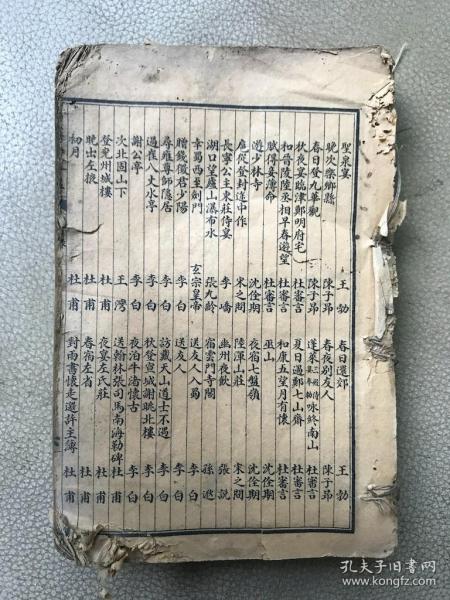 聖泉宴 王勃 春日還郊 王勃
晚次樂鄉縣 陳子昻 春夜別友人 陳子昻
春日登九華觀 陳子昻 蓬萊三殿侍宴奉勅咏終南山 杜審言
秋夜宴臨津鄭明府宅 杜審言 夏日過鄭七山齋 杜審言
和晉陵陸丞相早春遊望 杜審言 和康五望月有懷 杜審言
賦得妾薄命 杜審言 巫山 沈佺期
遊少林寺 沈佺期 夜宿七盤嶺 沈佺期
扈從登封途中作 宋之問 陸渾山莊 宋之問
長寧公主東莊侍宴 李嶠 幽州夜飲 張說
湖口望廬山瀑布水 張九齡 宿雲門寺閣 孫逖
幸蜀西至劍門 玄宗皇帝 送友人入蜀 李白
贈錢徵君少陽 李白 送友人 李白
尋雍尊師隱居 李白 訪戴天山道士不遇 李白
過崔八丈水亭 李白 秋登宣城謝眺北樓 李白
謝公亭 李白 夜泊牛渚懷古 李白
次北固山下 王灣 送翰林張司馬南海勒碑 杜甫
登兗州城樓 杜甫 夜宴左氏莊 杜甫
晚出左掖 杜甫 春宿左省 杜甫
初月 杜甫 對雨書懷走邀許主簿 杜甫
孔夫子旧书网
www.kongfz.com